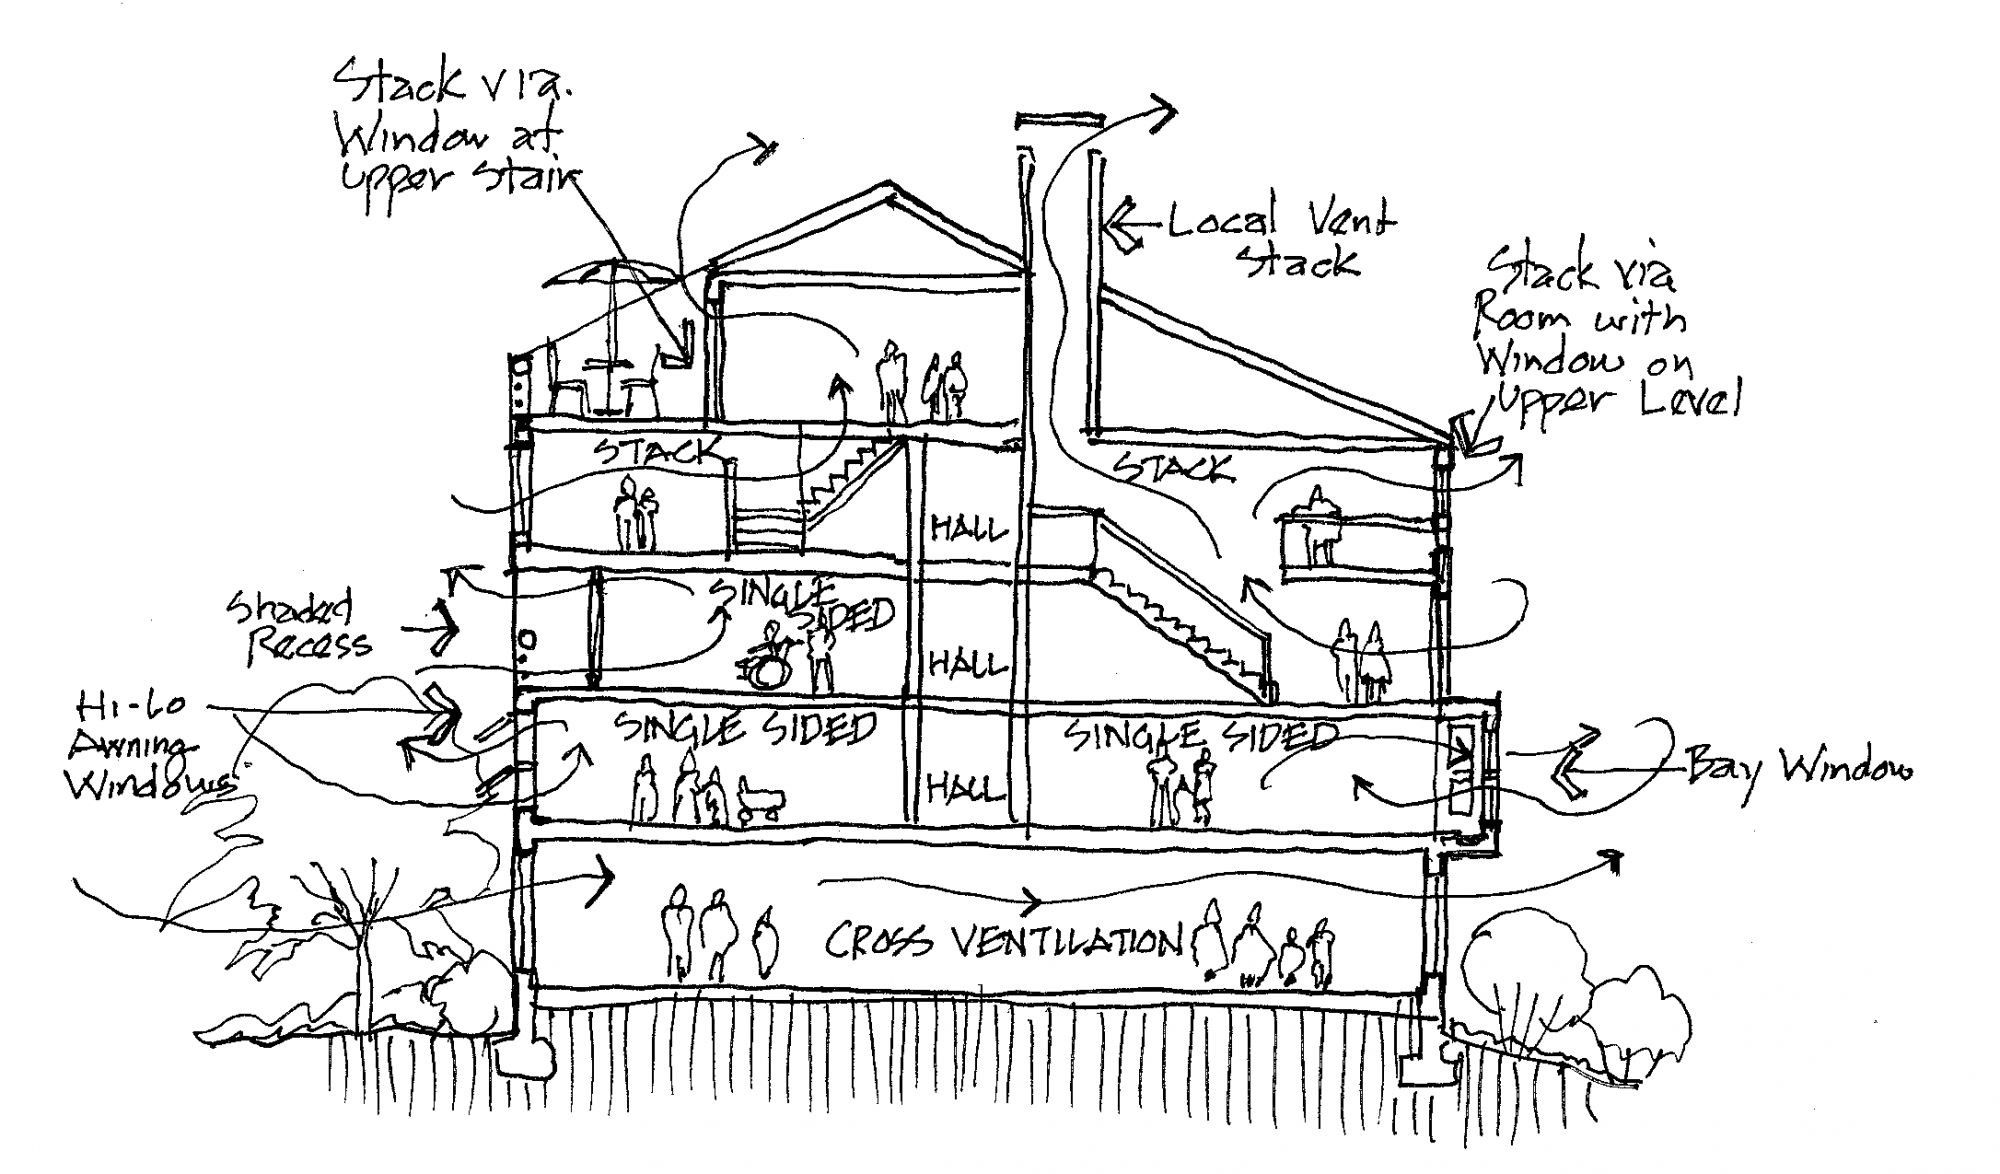 Stack via
Window at
upper stair
Local Vent
Stack
Stack via
Room with
Window on
Upper Level
STACK
STACK
HALL
Shaded
Recess
SINGLE
SIDED
HALL
Hi-Lo
Awning
Windows
SINGLE SIDED
SINGLE SIDED
HALL
Bay Window
CROSS VENTILATION